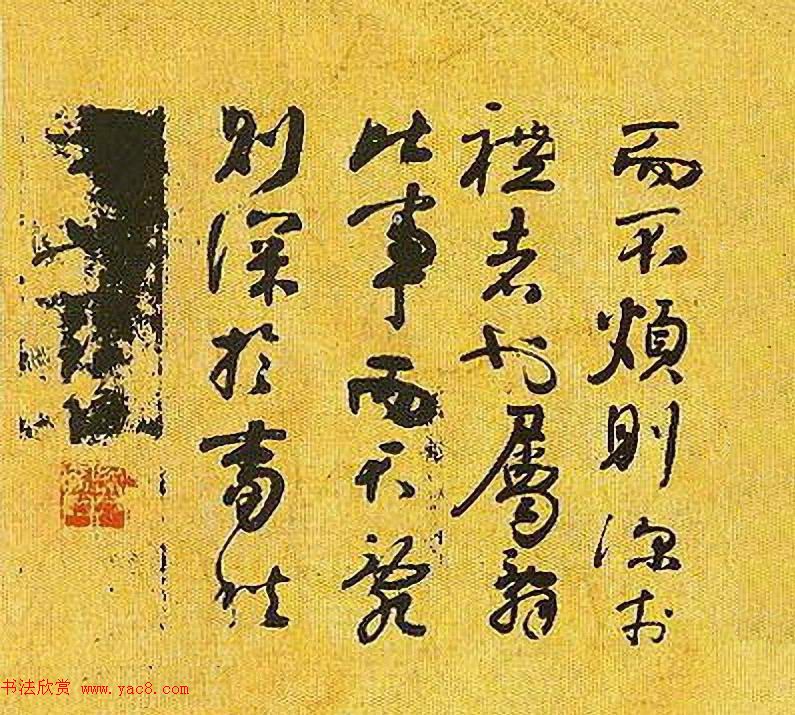 而不煩則深於
禮者也屬辭
比事而不亂
則深於春秋
书法欣赏 www.yac8.com